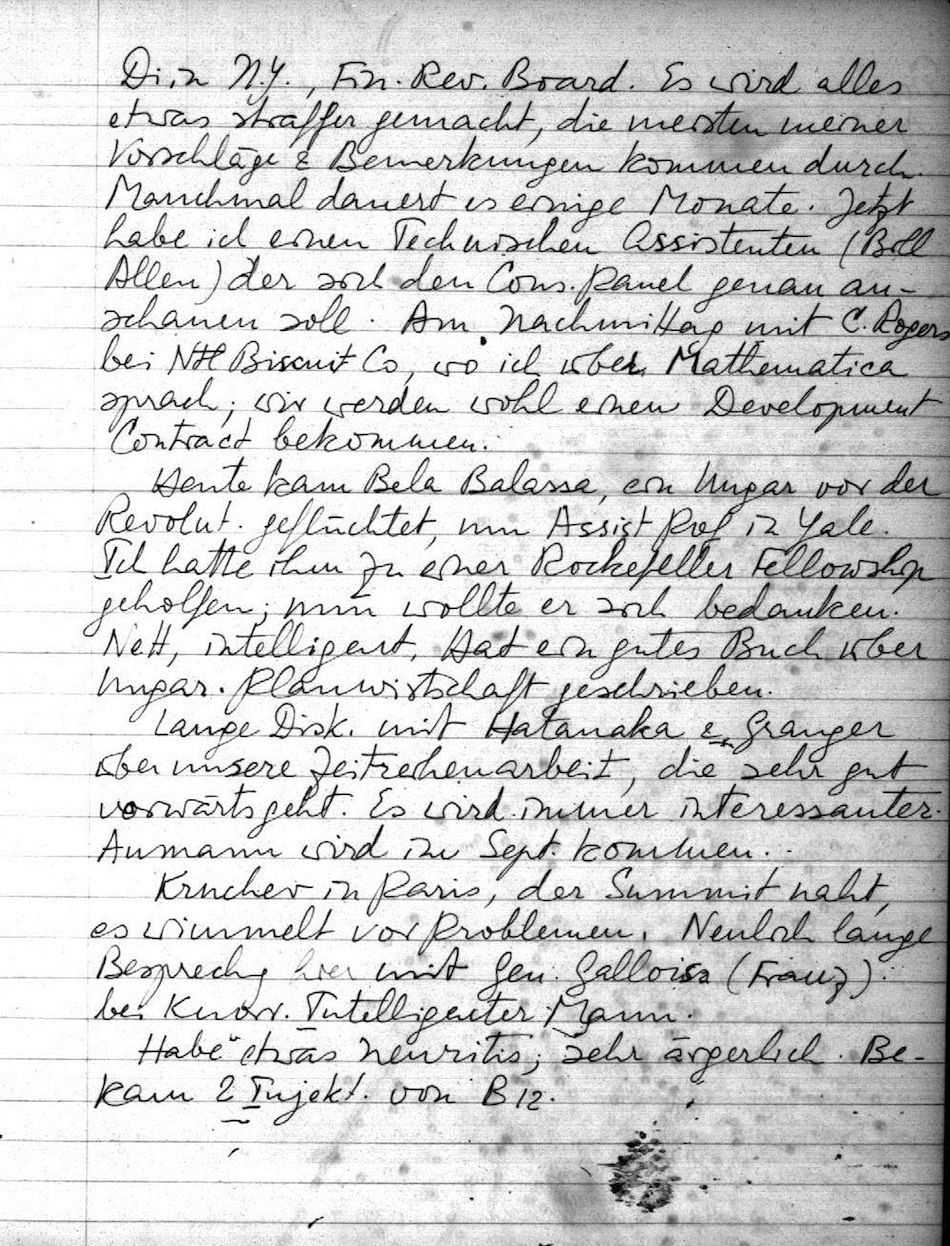 Di. in N.Y., Fin. Rev. Board. Es wird alles
etwas straffer gemacht, die meisten meiner
Vorschläge & Bemerkungen kommen durch.
Manchmal dauert es einige Monate. Jetzt
habe ich einen Technischen Assistenten (Bill
Allen) der sich den Cons. Panel genau an-
schauen soll. Am Nachmittag mit C. Rogers
bei Ntl Biscuit Co, wo ich über Mathematica
sprach; wir werden wohl einen Development
Contract bekommen.
Heute kam Bela Balassa, ein Ungar vor der
Revolut. geflüchtet, nun Assist Prof in Yale.
Ich hatte ihm zu einer Rockefeller Fellowship
geholfen; nun wollte er sich bedanken.
Nett, intelligent, Hat ein gutes Buch über
Ungar. Planwirtschaft geschrieben.
Lange Disk. mit Hatanaka & Granger
über unsere Zeitreihenarbeit, die sehr gut
vorwärts geht. Es wird immer interessanter.
Aumann wird im Sept. kommen.
Kruchev in Paris, der Summit naht,
es wimmelt vor Problemen. Neulich lange
Besprechg hier mit Gen. Gallois (Franz)
bei Knorr. Intelligenter Mann.
Habe etwas Neuritis; sehr ärgerlich. Be-
kam 2 Injekt. von B12.